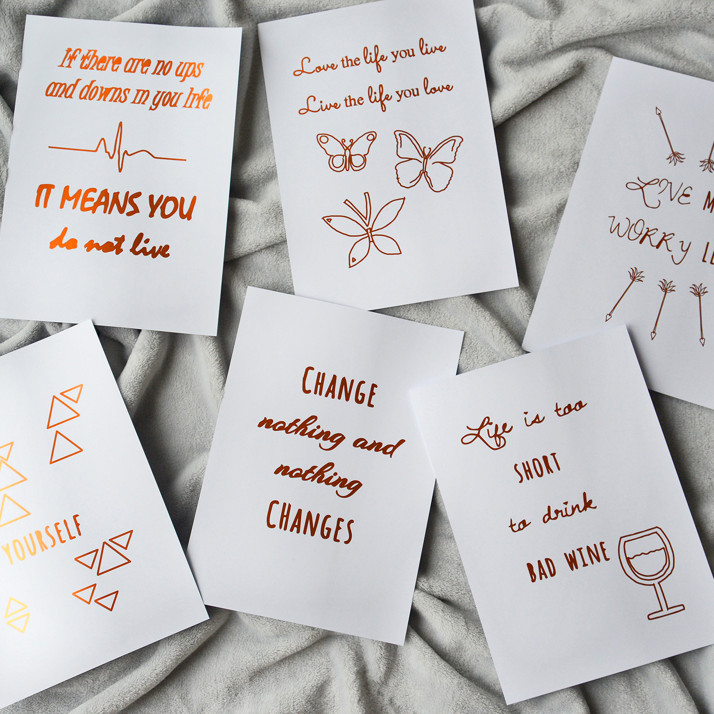 If there are no ups
and downs in you life
IT MEANS YOU
do not live
Love the life you live
Live the life you love
LIVE M
WORRY LE
YOURSELF
CHANGE
nothing and
nothing
CHANGES
Life is too
SHORT
to drink
BAD WINE